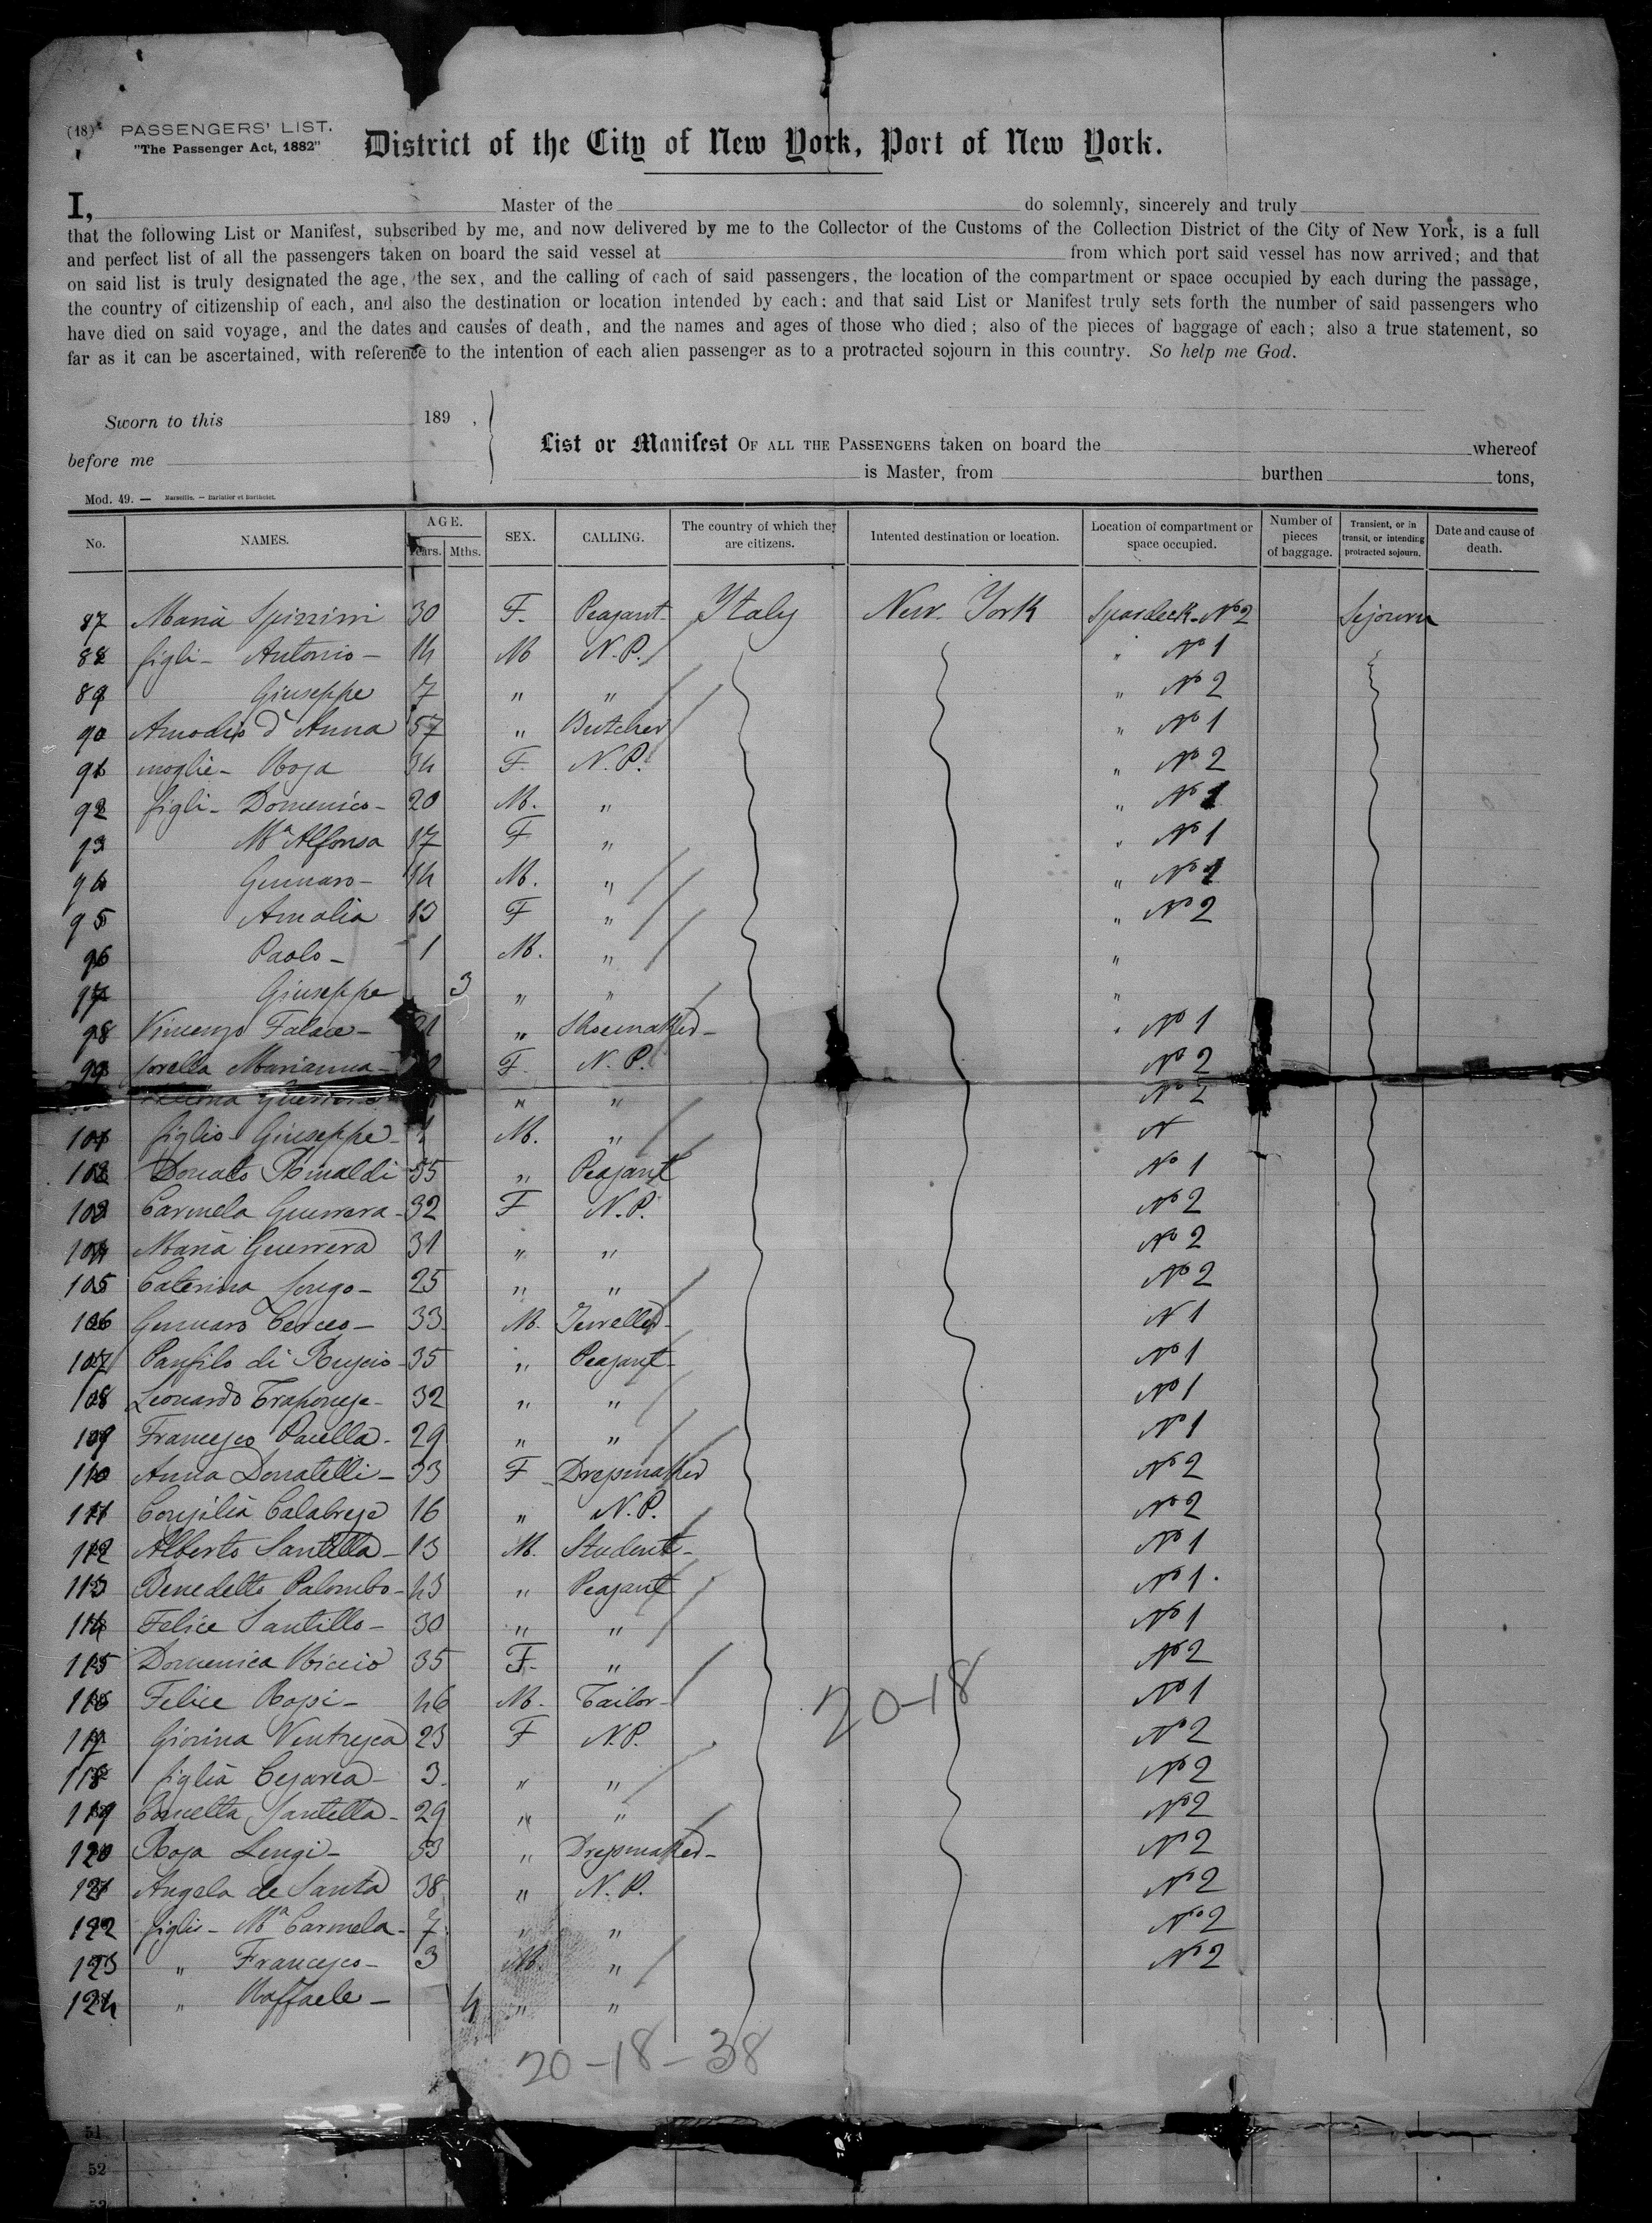 (18) PASSENGERS' LIST.
"The Passenger Act, 1882"
District of the City of New York, Port of New York.
I, Master of the do solemnly, sincerely and truly
that the following List or Manifest, subscribed by me, and now delivered by me to the Collector of the Customs of the Collection District of the City of New York, is a full
and perfect list of all the passengers taken on board the said vessel at from which port said vessel has now arrived; and that
on said list is truly designated the age, the sex, and the calling of each of said passengers, the location of the compartment or space occupied by each during the passage,
the country of citizenship of each, and also the destination or location intended by each; and that said List or Manifest truly sets forth the number of said passengers who
have died on said voyage, and the dates and causes of death, and the names and ages of those who died; also of the pieces of baggage of each; also a true statement, so
far as it can be ascertained, with reference to the intention of each alien passenger as to a protracted sojourn in this country. So help me God.
Sworn to this 189 ,
before me
List or Manifest OF ALL THE PASSENGERS taken on board the whereof
is Master, from burthen tons,
Mod. 49. — Marseille. — Barlatier et Barthelet.
No. NAMES. AGE. Years. Mths. SEX. CALLING. The country of which they are citizens. Intented destination or location. Location of compartment or space occupied. Number of pieces of baggage. Transient, or in transit, or intending protracted sojourn. Date and cause of death.
87 Maria Spizzirri 30 F. Peasant Italy New York Spardeck N° 2 Sejourn
88 figli - Antonio - 14 M N.P. " N° 1
89 Giuseppe 7 " " " N° 2
90 Amodio d'Anna 57 " Butcher " N° 1
91 moglie - Rosa 34 F. N.P. " N° 2
92 figli - Domenico - 20 M. " " N° 1
93 Mª Alfonsa 17 F " " N° 1
94 Gennaro - 14 M. " " N° 1
95 Amalia 13 F " " N° 2
96 Paolo - 1 M. " "
97 Giuseppe 3 " " "
98 Vincenzo Falace - 21 " Shoemaker - " N° 1
99 sorella Marianna - F. N.P. N° 2
Guerrera " " N° 2
101 figlio Giuseppe - M. " N
102 Donato Rinaldi 55 " Peasant N° 1
103 Carmela Guerrera - 32 F N.P. N° 2
104 Maria Guerrera 31 " " N° 2
105 Caterina Longo - 25 " " N° 2
106 Gennaro - 33 M. Jeweller - N 1
107 Panfilo di Ruscio - 35 " Peasant - N° 1
108 Leonardo Traponese - 32 " " N° 1
109 Francesco Pacella - 29 " " N° 1
110 Anna Donatelli - 33 F - Dressmaker N° 2
111 Consilia Calabrese 16 " N.P. N° 2
112 Alberto Santella - 13 M. Student - N° 1
113 Benedetto Palombo - 43 " Peasant N° 1.
114 Felice Santillo - 30 " " N° 1
115 Domenica Riccio 35 F. " N° 2
116 Felice Rossi - 46 M. Tailor - N° 1
20-18
117 Giovina Ventresca 23 F N.P. N° 2
118 figlia Cesarea - 3. " " N° 2
119 Concetta Santella - 29 " " N° 2
120 Rosa Lengi - 53 " Dressmaker - N° 2
121 Angela de Santa 38 " N.P. N° 2
122 figlie - Mª Carmela - 7 " " N° 2
123 " Francesco - 3 M. " N° 2
124 " Raffaele - 4 " "
20-18-38
51
52
53